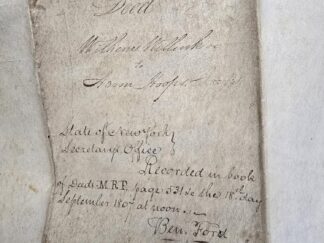 Deed
Wilhem Willink &
to
State of New York
Secretarys Office
Recorded in book
of Deeds M.R.P. page 531 &c the 18th day
September 180 at noon.
Ben. Ford